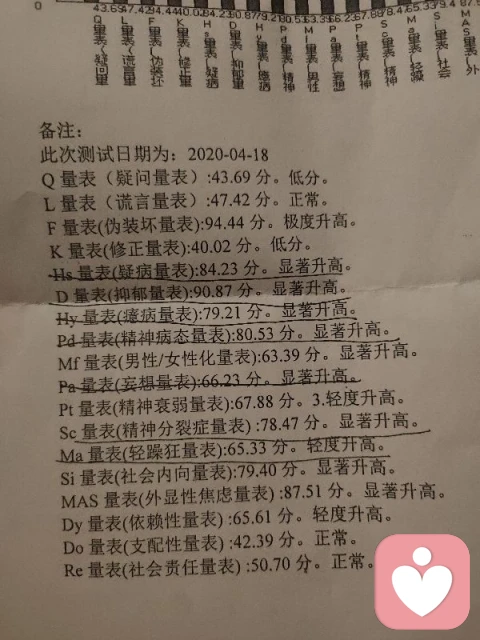 0
43.69 47.42 94.44 40.02 84.23 90.87 79.21 80.53 63.39 66.23 67.88 78.47 65.33 79.4 87.5
Q量表(疑问量
L量表(谎言量
F量表(伪装坏
K量表(修正量
Hs量表(疑病
D量表(抑郁量
Hy量表(癔病
Pd量表(精神
Mf量表(男性
Pa量表(妄想
Pt量表(精神
Sc量表(精神
Ma量表(轻躁
Si量表(社会
MAS量表(外
备注:
此次测试日期为:2020-04-18
Q 量表(疑问量表):43.69 分。低分。
L 量表(谎言量表):47.42 分。正常。
F 量表(伪装坏量表):94.44 分。极度升高。
K 量表(修正量表):40.02 分。低分。
Hs 量表(疑病量表):84.23 分。显著升高。
D 量表(抑郁量表):90.87 分。显著升高。
Hy 量表(癔病量表):79.21 分。显著升高。
Pd 量表(精神病态量表):80.53 分。显著升高。
Mf 量表(男性/女性化量表):63.39 分。显著升高。
Pa 量表(妄想量表):66.23 分。显著升高。
Pt 量表(精神衰弱量表):67.88 分。3.轻度升高。
Sc 量表(精神分裂症量表) :78.47 分。显著升高。
Ma 量表(轻躁狂量表):65.33 分。轻度升高。
Si 量表(社会内向量表):79.40 分。显著升高。
MAS 量表(外显性焦虑量表) :87.51 分。显著升高。
Dy 量表(依赖性量表) :65.61 分。轻度升高。
Do 量表(支配性量表) :42.39 分。正常。
Re 量表(社会责任量表) :50.70 分。正常。